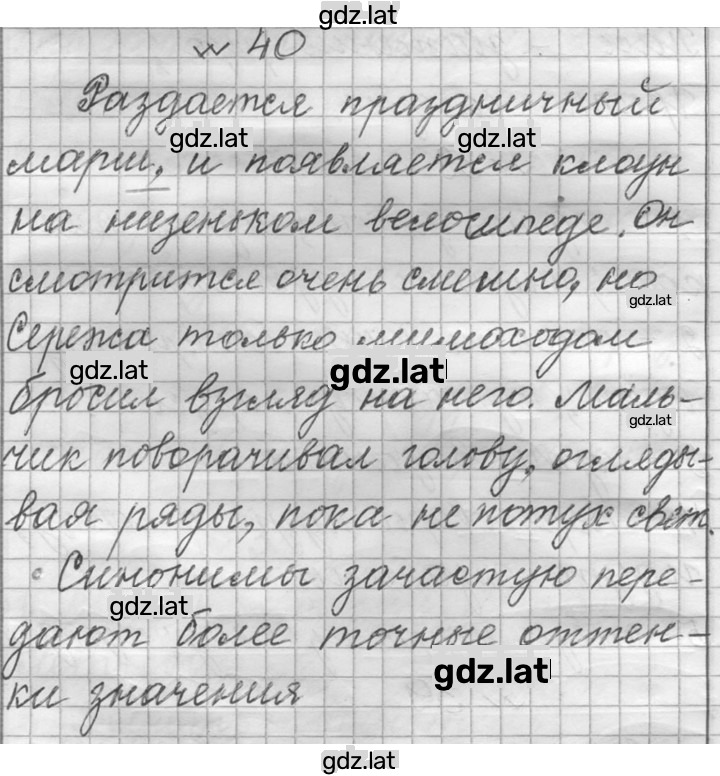 gdz.lat
№ 40
Раздается праздничный
gdz.lat gdz.lat
марш, и появляется клоун
на низеньком велосипеде. Он
смотрится очень смешно, но
gdz.lat
Сережа только мимоходом
gdz.lat gdz.lat
бросил взгляд на него. Маль-
gdz.lat
чик поворачивал голову, огляды-
вая ряды, пока не потух свет.
Синонимы зачастую пере-
gdz.lat
дают более точные оттен-
gdz.lat
ки значения
gdz.lat